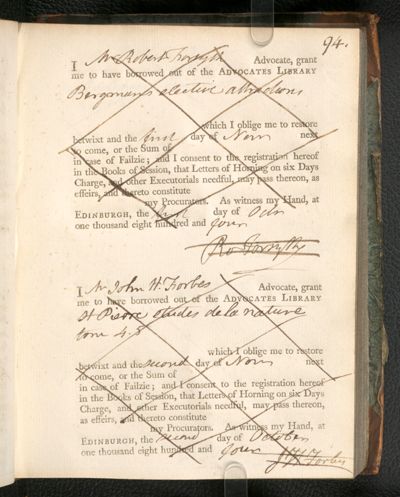 94.
I Mr Robert Forsyth Advocate, grant
me to have borrowed out of the ADVOCATES LIBRARY
Bergman's elective attractions
which I oblige me to restore
betwixt and the first day of Novr next
to come, or the Sum of
in case of Failzie; and I consent to the registration hereof
in the Books of Session, that Letters of Horning on six Days
Charge, and other Executorials needful, may pass thereon, as
effeirs, and thereto constitute
my Procurators. As witness my Hand, at
EDINBURGH, the first day of Octr
one thousand eight hundred and four
Ro Forsyth
I Mr John H. Forbes Advocate, grant
me to have borrowed out of the ADVOCATES LIBRARY
St Pierre etudes de la nature
tom 4. 5
which I oblige me to restore
betwixt and the second day of Novr next
to come, or the Sum of
in case of Failzie; and I consent to the registration hereof
in the Books of Session, that Letters of Horning on six Days
Charge, and other Executorials needful, may pass thereon,
as effeirs, and thereto constitute
my Procurators. As witness my Hand, at
EDINBURGH, the second day of October
one thousand eight hundred and four
J H Forbes